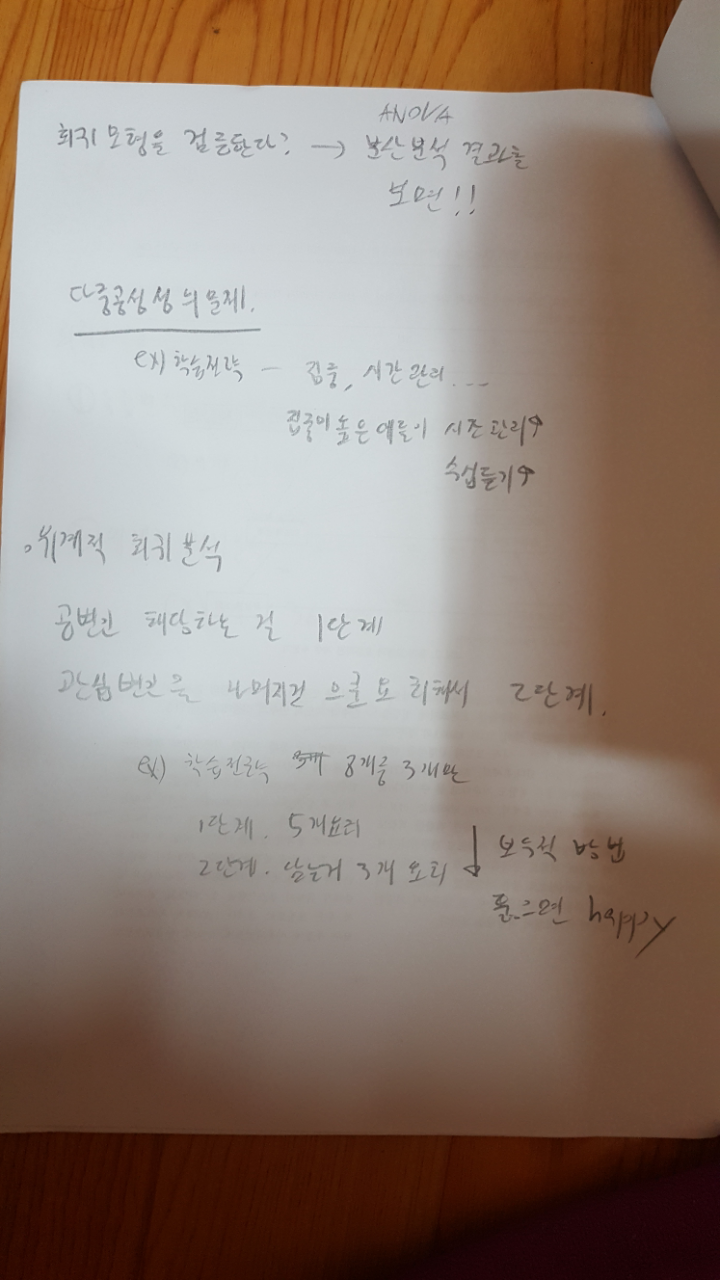 ANOVA
회귀모형을 검증한다? → 분산분석 결과를
보면!!
다중공성성의 문제.
ex) 학습전략 - 집중, 시간관리...
집중이 높은 애들이 시간관리↑
수업듣기↑
위계적 회귀분석
공변인 해당하는 걸 1단계
관심변인을 나머지건 2단계.
ex) 학습전략 8개중 3개만
1단계. 5개요인
2단계. 남는거 3개 요인 ↓ 보수적 방법
풀으면 happy